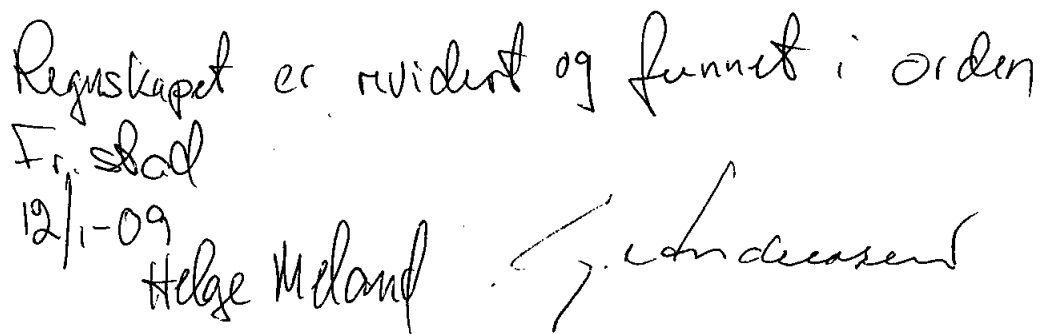 Regnskapet er revidert og funnet i orden
Fr.stad
12/1-09
Helge Meland Andreassen